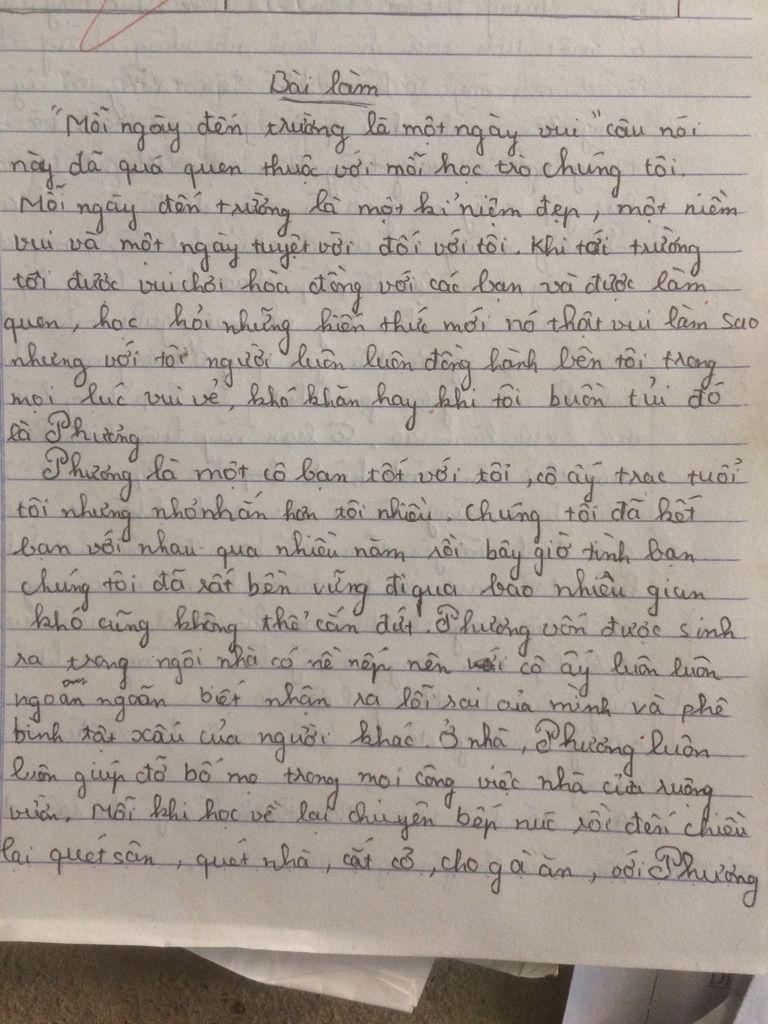 Bài làm
"Mỗi ngày đến trường là một ngày vui" câu nói
này đã quá quen thuộc với mỗi học trò chúng tôi.
Mỗi ngày đến trường là một kỉ niệm đẹp, một niềm
vui và một ngày tuyệt vời đối với tôi. Khi tới trường
tôi được vui chơi hòa đồng với các bạn và được làm
quen, học hỏi những kiến thức mới nó thật vui làm sao
nhưng với tôi người luôn luôn đồng hành bên tôi trong
mọi lúc vui vẻ, khó khăn hay khi tôi buồn tủi đó
là Phương
Phương là một cô bạn tốt với tôi, cô ấy trạc tuổi
tôi nhưng nhỏ nhắn hơn tôi nhiều. Chúng tôi đã kết
bạn với nhau qua nhiều năm rồi bây giờ tình bạn
chúng tôi đã rất bền vững đi qua bao nhiêu gian
khó cũng không thể cắn đứt. Phương vốn được sinh
ra trong ngôi nhà có nề nếp nên cô ấy luôn luôn
ngoan ngoãn biết nhận ra lỗi sai của mình và phê
bình tật xấu của người khác. Ở nhà, Phương luôn
luôn giúp đỡ bố mẹ trong mọi công việc nhà cửa ruộng
vườn. Mỗi khi học về lại chuyện bếp nức rồi đến chiều
lại quét sân, quét nhà, cắt cỏ, cho gà ăn, với Phương